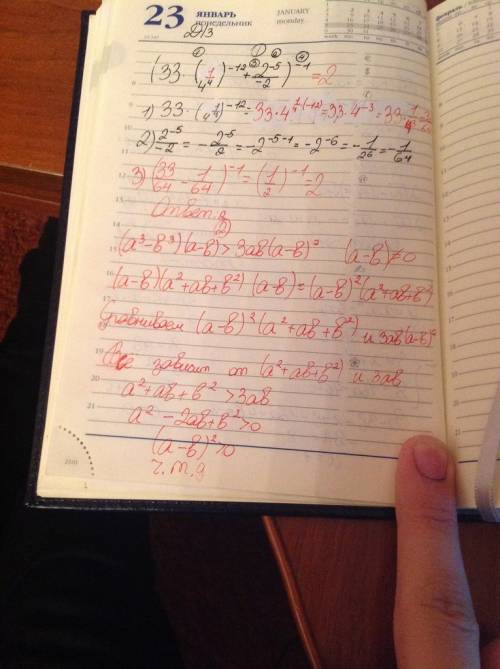 23 ЯНВАРЬ ПОНЕДЕЛЬНИК JANUARY monday
Февраль
Д/З
(33·(1/4^4)^-12 + 2^-5/-2)^-1 = 2
1) 33·(4^1/4)^-12 = 33·4^1/4·(-12) = 33·4^-3 = 33·1/4^3 =
2) 2^-5/-2 = -2^-5/2 = -2^-5-1 = -2^-6 = -1/2^6 = -1/64
3) (33/64 - 1/64)^-1 = (1/2)^-1 = 2
Ответ:
(2)
(a³-b³)(a-b) > 3ab(a-b)² (a-b)≠0
(a-b)(a²+ab+b²)(a-b) = (a-b)²(a²+ab+b²)
Сравниваем (a-b)²(a²+ab+b²) и 3ab(a-b)²
Все зависит от (a²+ab+b²) и 3ab
a²+ab+b² > 3ab
a²-2ab+b²>0
(a-b)²>0
ч.т.д